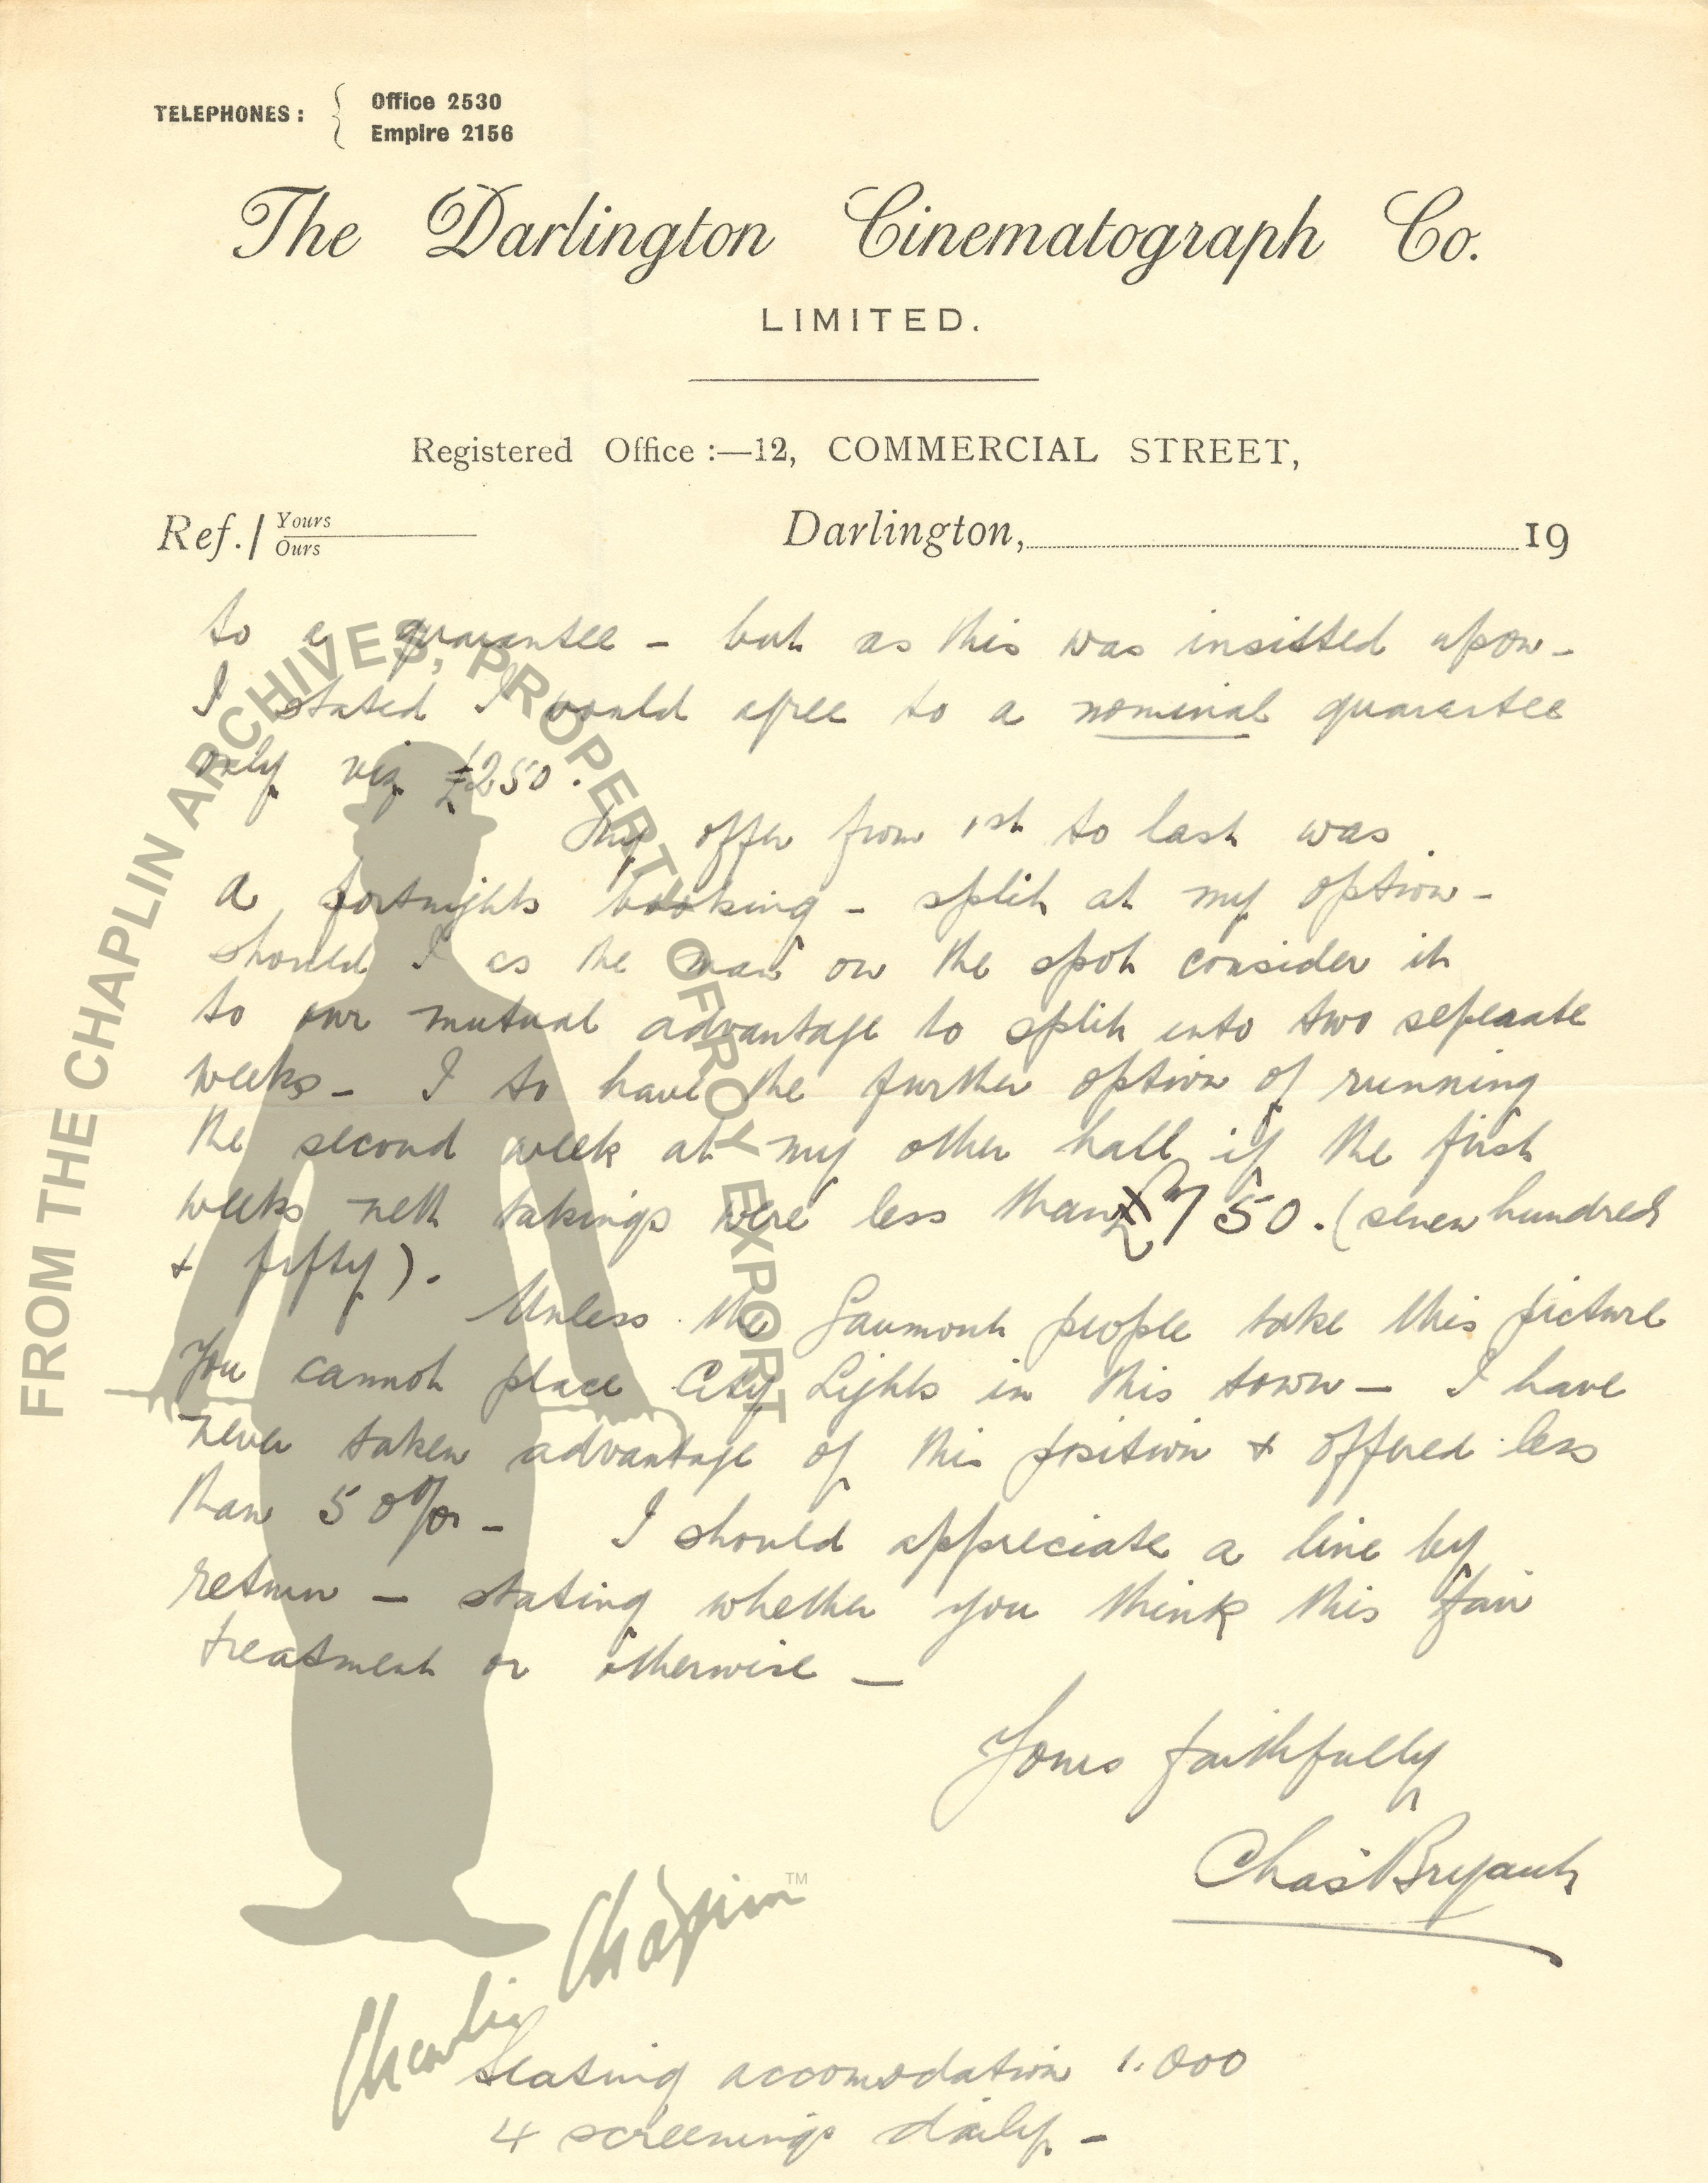 TELEPHONES: { Office 2530
Empire 2156
The Darlington Cinematograph Co.
LIMITED.
Registered Office :—12, COMMERCIAL STREET,
Ref./ Yours
Ours
Darlington, 19
to a guarantee – but as this was insisted upon –
I stated I would agree to a nominal guarantee
only viz £250.
My offer from 1st to last was
a fortnights booking – split at my option –
should I as the man on the spot consider it
to our mutual advantage to split into two seperate
weeks – I to have the further option of running
the second week at my other hall if the first
weeks nett takings were less than £750. (seven hundred
+ fifty).
Unless the Gaumont people take this picture
you cannot place City Lights in this town – I have
never taken advantage of this position + offered less
than 50% – I should appreciate a line by
return – stating whether you think this fair
treatment or otherwise –
Yours faithfully
Chas Bryant
Seating accomodation 1.000
4 screenings daily –
FROM THE CHAPLIN ARCHIVES, PROPERTY OF ROY EXPORT
Charlie Chaplin TM